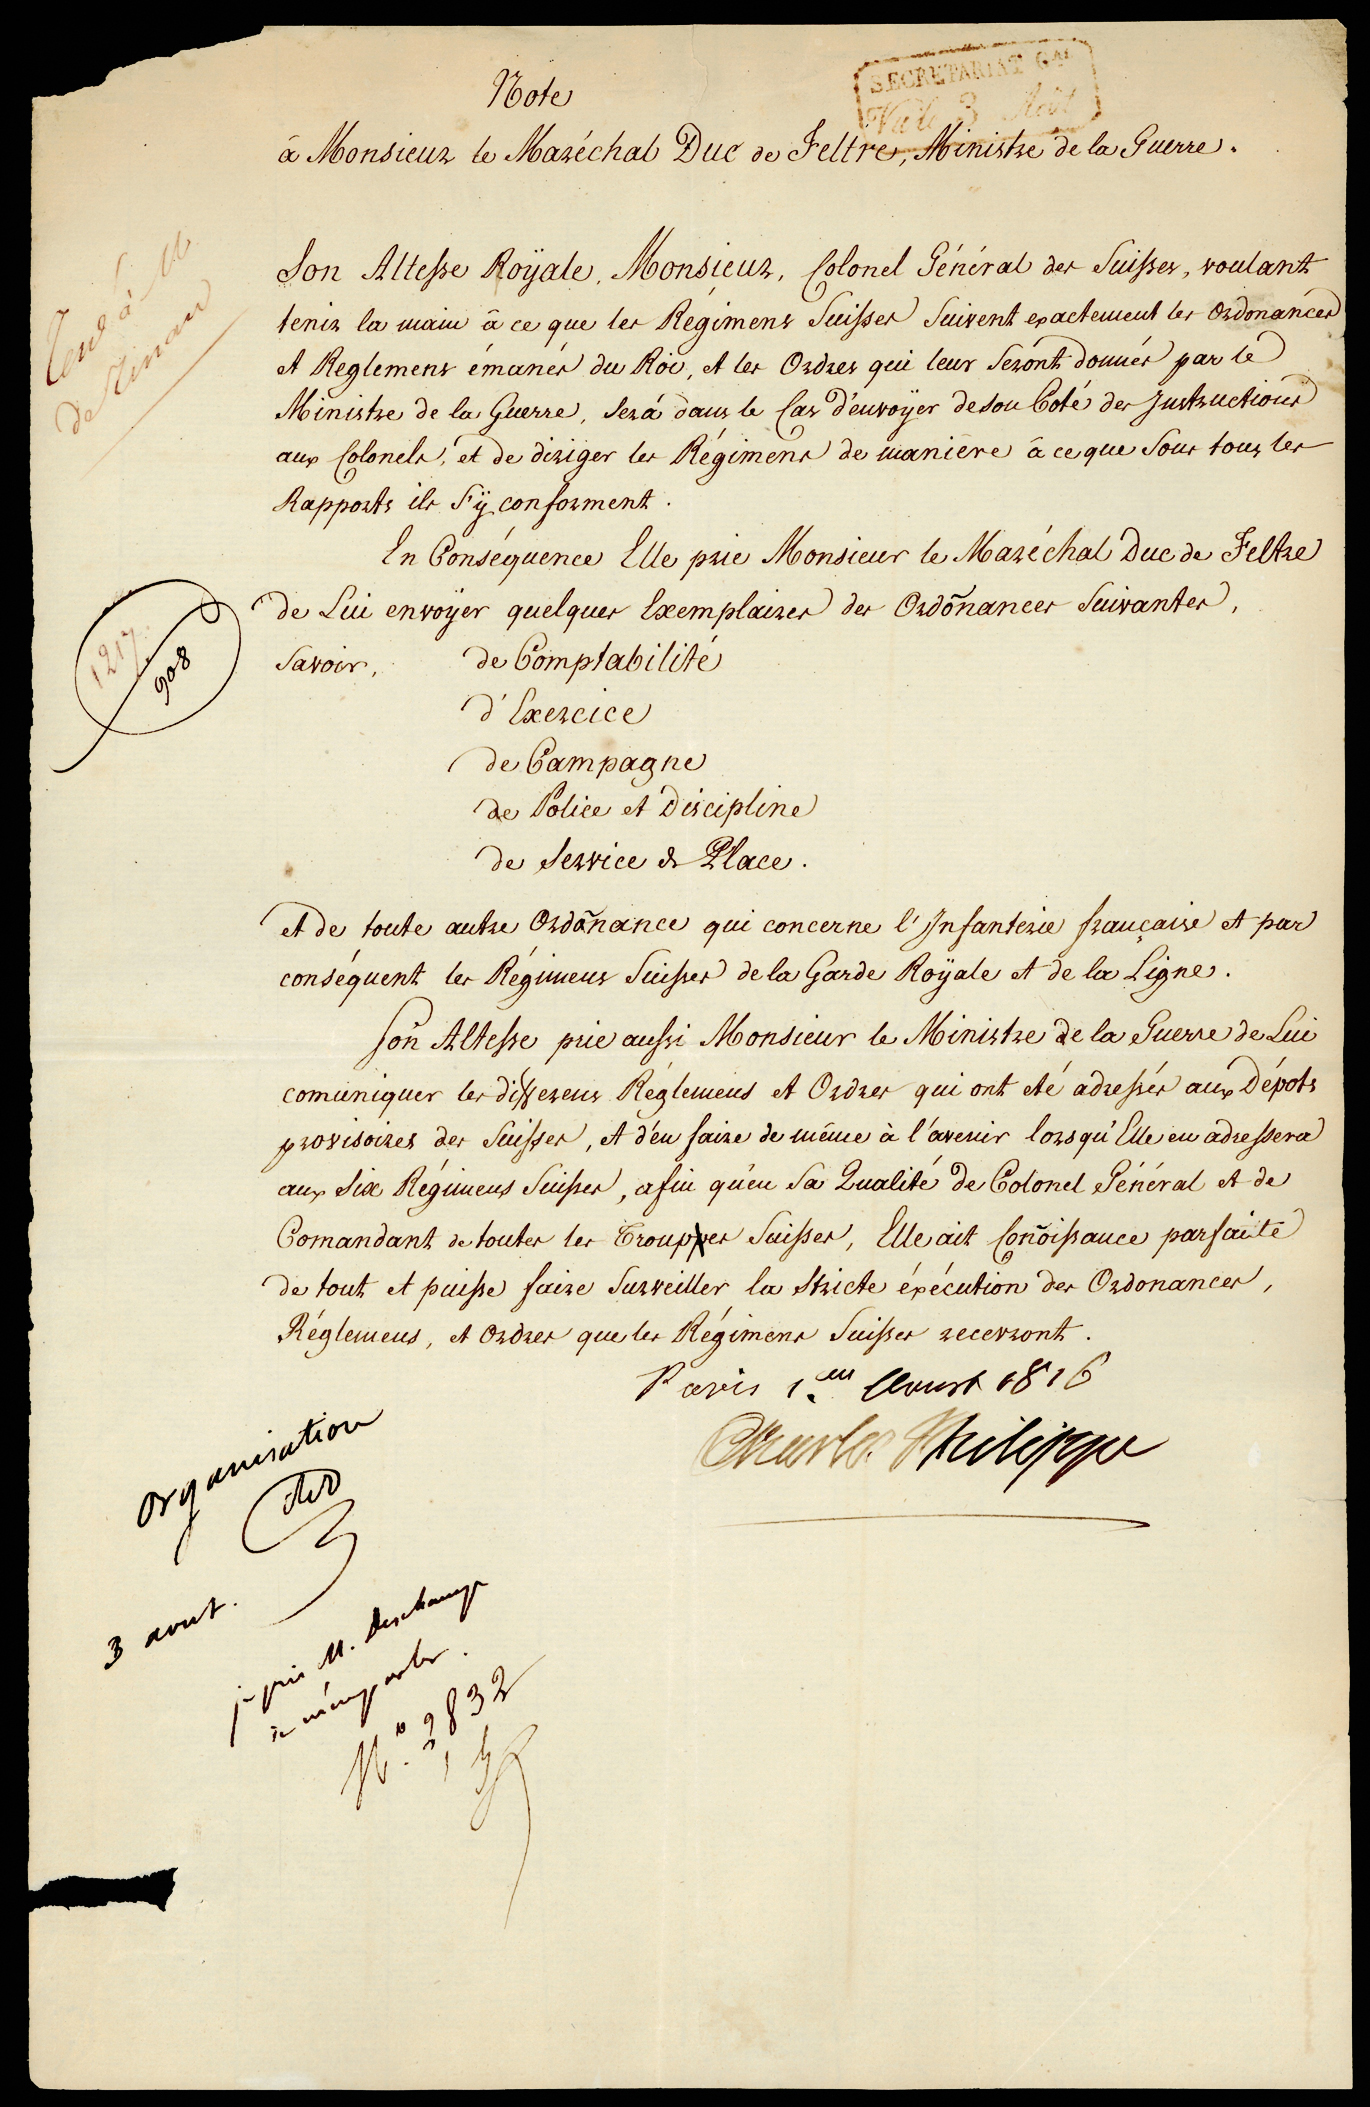 Note
SECRETARIAT Gal
3 Aôut
à Monsieur le Maréchal Duc de Feltre, Ministre de la Guerre.
Son Altesse Roÿale, Monsieur, Colonel Général des Suisses, voulant
tenir la main à ce que les Régimens Suisses Suivent exactement les Ordonances
et Reglemens émanés du Roi, et les Ordres qui leur Seront donnés par le
Ministre de la Guerre, Sera dans le Cas d'envoÿer de son Coté des Instructions
aux Colonels, et de diriger les Régimens de manière à ce que Sous tous les
Rapports ils s'ÿ conforment.
En Conséquence Elle prie Monsieur le Maréchal Duc de Feltre
de Lui envoÿer quelques Exemplaires des Ordoñances Suivantes,
Savoir, de Comptabilité
d'Exercice
de Campagne
de Police et Discipline
de Service de Place.
et de toute autre Ordoñance qui concerne l'Infanterie française et par
conséquent les Régimens Suisses de la Garde Roÿale et de la Ligne.
Son Altesse prie aussi Monsieur le Ministre de la Guerre de Lui
comuniquer les differens Réglemens et Ordres qui ont été adressés aux Dépots
provisoires des Suisses, et d'en faire de même à l'avenir lorsqu'Elle en adressera
aux Six Régimens Suisses, afin qu'en Sa Qualité de Colonel Général et de
Comandant de toutes les Troupes Suisses, Elle ait Coñoissance parfaite
de tout et puisse faire Surveiller la Stricte éxécution des Ordonances,
Réglemens, et Ordres que les Régimens Suisses recevront.
Paris 1.er Aoust 1816
Charles Philippe
1217.
908
organisation
3 aout.
je prie M. Deschamps
de m'en parler.
N.o 2832